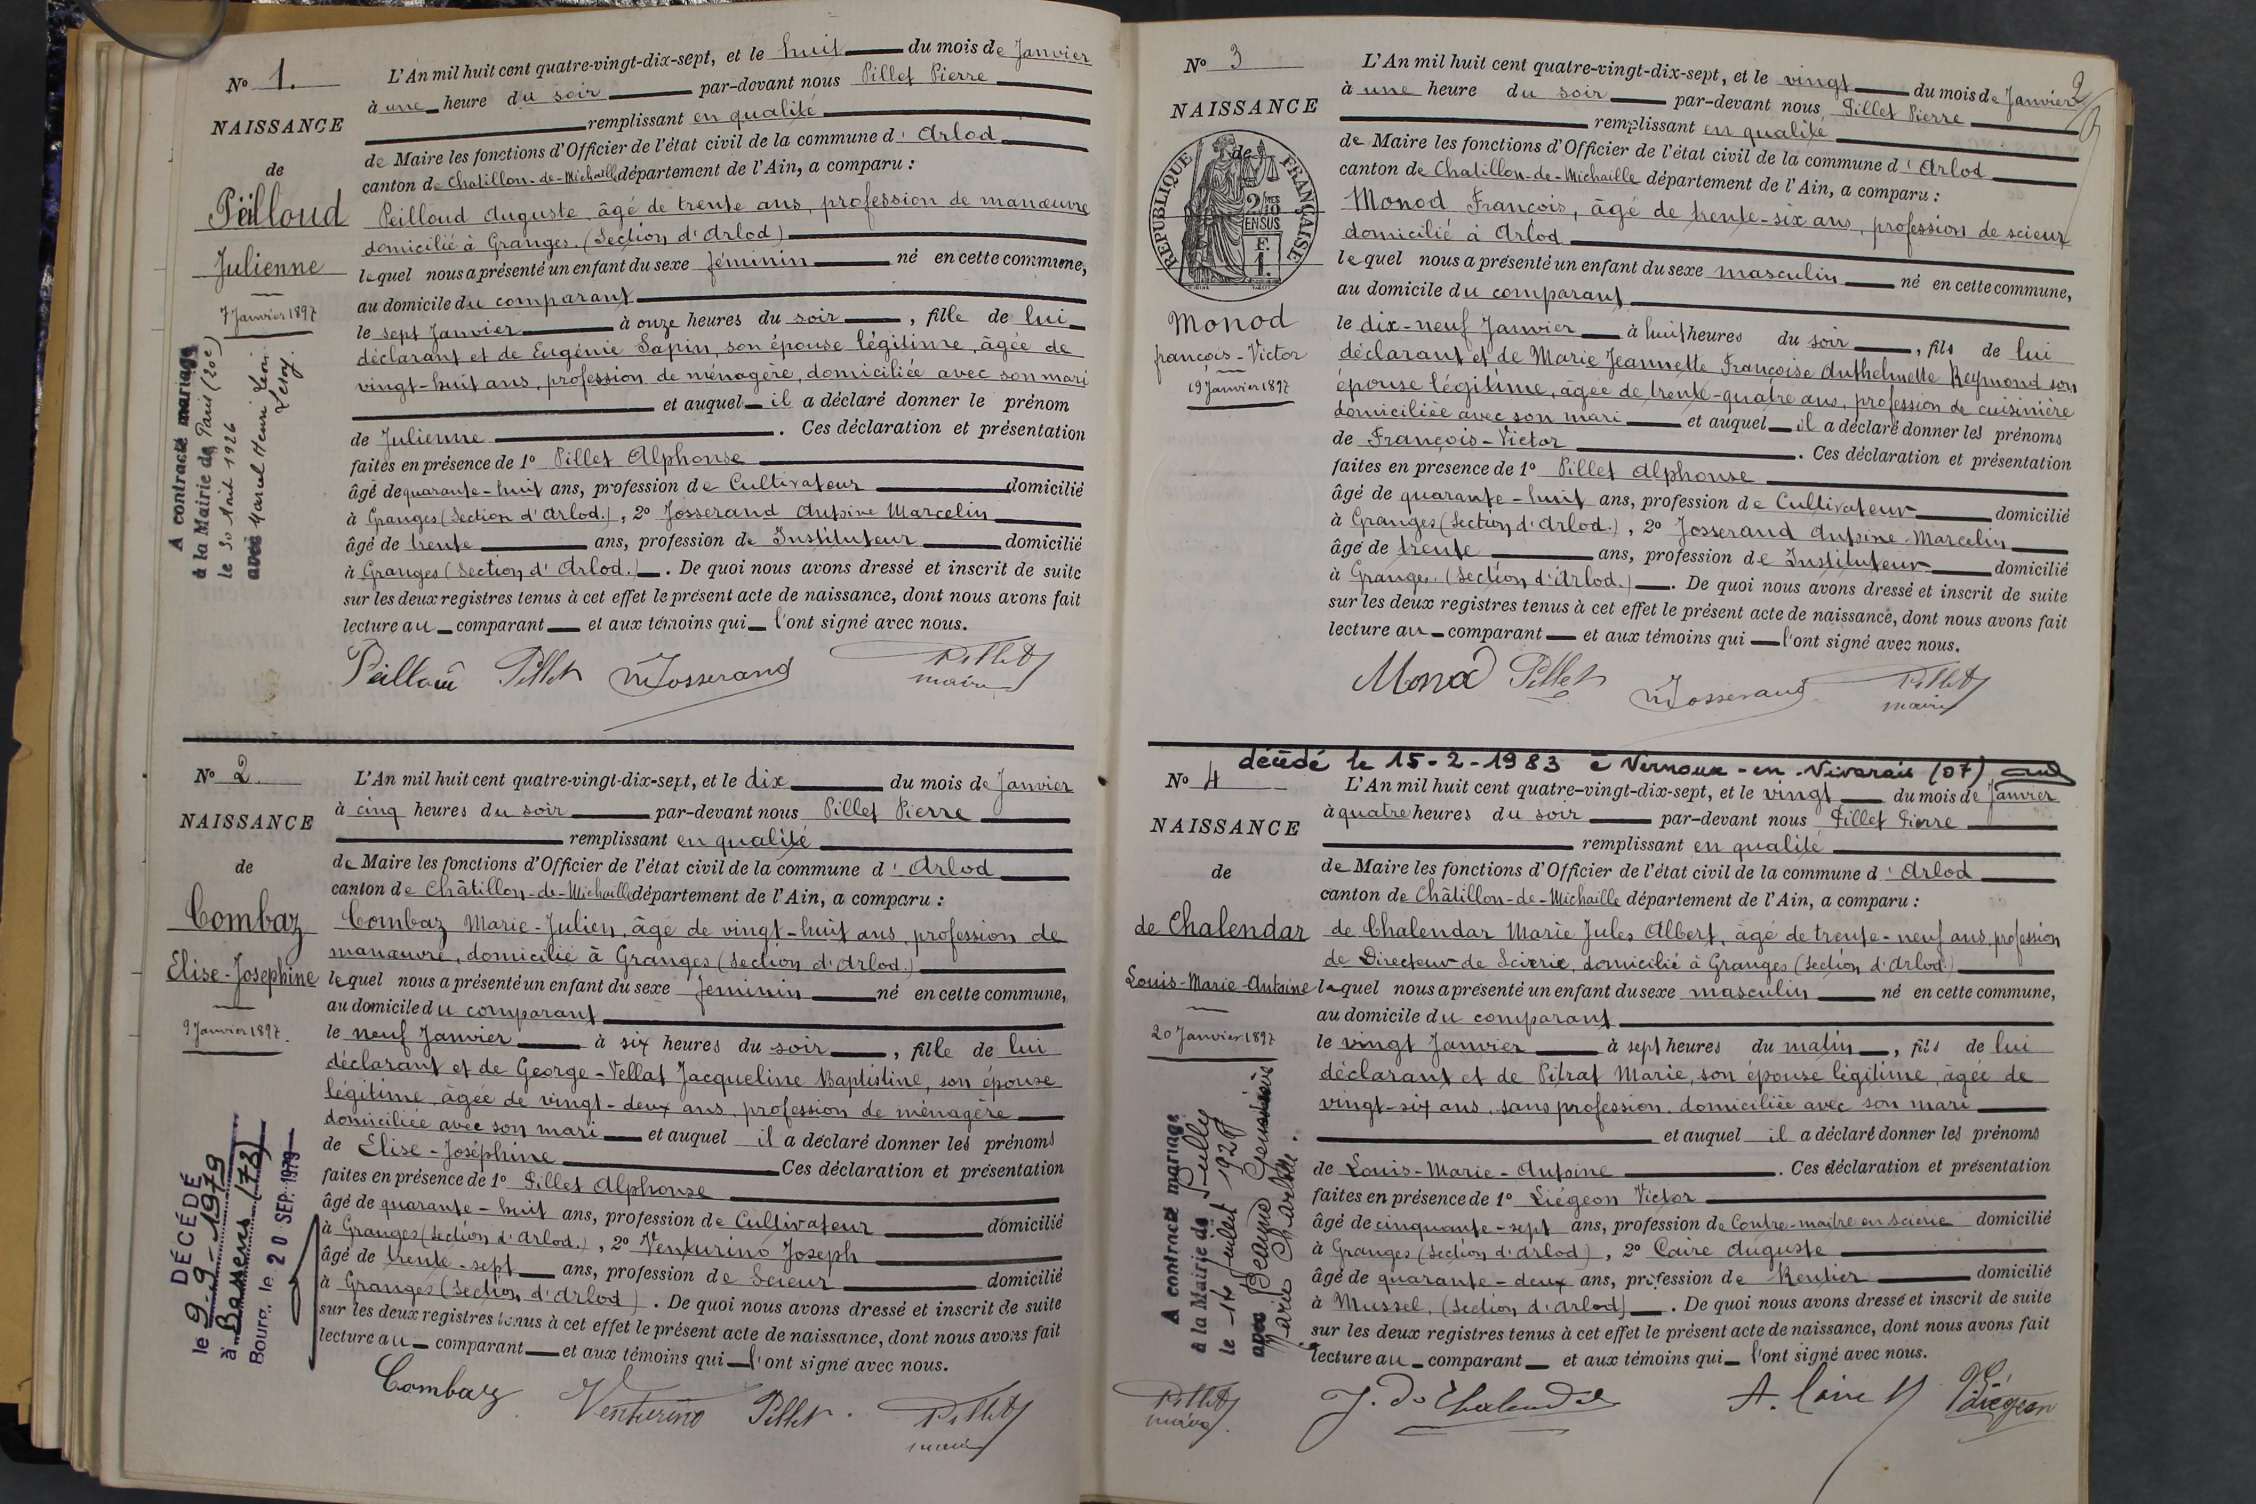 Nº 1.
NAISSANCE
de
Peilloud
Julienne
7 Janvier 1897
A contracté mariage
à la Mairie de Paris (20e)
le 30 Août 1926
avec Marcel Henri Léon
Leroy.
L'An mil huit cent quatre-vingt-dix-sept, et le huit du mois de Janvier
à une heure du soir par-devant nous Pillet Pierre
remplissant en qualité
de Maire les fonctions d'Officier de l'état civil de la commune d'Arlod
canton de Chatillon-de-Michaille département de l'Ain, a comparu :
Peilloud Auguste, âgé de trente ans, profession de manœuvre
domicilié à Granges. (Section d'Arlod)
lequel nous a présenté un enfant du sexe féminin né en cette commune,
au domicile du comparant
le sept Janvier à onze heures du soir, fille de lui
déclarant et de Eugénie Sapin, son épouse légitime, âgée de
vingt-huit ans, profession de ménagère, domiciliée avec son mari
et auquel il a déclaré donner le prénom
de Julienne. Ces déclaration et présentation
faites en présence de 1º Pillet Alphonse
âgé de quarante-huit ans, profession de Cultivateur domicilié
à Granges (Section d'Arlod.), 2º Josserand Antoine Marcelin
âgé de trente ans, profession de Instituteur domicilié
à Granges (Section d'Arlod.). De quoi nous avons dressé et inscrit de suite
sur les deux registres tenus à cet effet le présent acte de naissance, dont nous avons fait
lecture au comparant et aux témoins qui l'ont signé avec nous.
Peilloud Pillet Josserand Pillet
maire
Nº 2.
NAISSANCE
de
Combaz
Elise-Josephine
9 Janvier 1897.
DÉCÉDÉ
le 9-9-1979
à Bassens (73)
Bourg, le 20 SEP. 1979
L'An mil huit cent quatre-vingt-dix-sept, et le dix du mois de Janvier
à cinq heures du soir par-devant nous Pillet Pierre
remplissant en qualité
de Maire les fonctions d'Officier de l'état civil de la commune d'Arlod
canton de Châtillon-de-Michaille département de l'Ain, a comparu :
Combaz Marie-Julien, âgé de vingt-huit ans, profession de
manœuvre, domicilié à Granges (Section d'Arlod.)
lequel nous a présenté un enfant du sexe féminin né en cette commune,
au domicile du comparant
le neuf Janvier à six heures du soir, fille de lui
déclarant et de George-Vellat Jacqueline Baptistine, son épouse
légitime, âgée de vingt-deux ans, profession de ménagère
domiciliée avec son mari et auquel il a déclaré donner les prénoms
de Elise-Joséphine Ces déclaration et présentation
faites en présence de 1º Pillet Alphonse
âgé de quarante-huit ans, profession de Cultivateur domicilié
à Granges (Section d'Arlod.), 2º Venturino Joseph
âgé de trente-sept ans, profession de Scieur domicilié
à Granges (Section d'Arlod). De quoi nous avons dressé et inscrit de suite
sur les deux registres tenus à cet effet le présent acte de naissance, dont nous avons fait
lecture au comparant et aux témoins qui l'ont signé avec nous.
Combaz Venturino Pillet Pillet
maire
2
Nº 3
NAISSANCE
de
REPUBLIQUE FRANÇAISE
2/10
EN SUS
F.
1.
Monod
françois-Victor
19 Janvier 1897
L'An mil huit cent quatre-vingt-dix-sept, et le vingt du mois de Janvier
à une heure du soir par-devant nous Pillet Pierre
remplissant en qualité
de Maire les fonctions d'Officier de l'état civil de la commune d'Arlod
canton de Chatillon-de-Michaille département de l'Ain, a comparu :
Monod François, âgé de trente-six ans, profession de scieur
domicilié à Arlod
lequel nous a présenté un enfant du sexe masculin né en cette commune,
au domicile du comparant
le dix-neuf Janvier à huit heures du soir, fils de lui
déclarant et de Marie Jeannette Françoise Anthelmette Reymond son
épouse légitime, âgée de trente-quatre ans, profession de cuisinière
domiciliée avec son mari et auquel il a déclaré donner les prénoms
de François-Victor. Ces déclaration et présentation
faites en présence de 1º Pillet Alphonse
âgé de quarante-huit ans, profession de Cultivateur domicilié
à Granges (Section d'Arlod.), 2º Josserand Antoine-Marcelin
âgé de trente ans, profession de Instituteur domicilié
à Granges. (Section d'Arlod.). De quoi nous avons dressé et inscrit de suite
sur les deux registres tenus à cet effet le présent acte de naissance, dont nous avons fait
lecture au comparant et aux témoins qui l'ont signé avec nous.
Monod Pillet Josserand Pillet
maire
décédé le 15-2-1983 à Vernoux-en-Vivarais (07)
Nº 4
NAISSANCE
de
de Chalendar
Louis-Marie-Antoine
20 Janvier 1897
A contracté mariage
à la Mairie de Pully
le 14 Juillet 192
avec Beaume
Marie Charlotte.
L'An mil huit cent quatre-vingt-dix-sept, et le vingt du mois de Janvier
à quatre heures du soir par-devant nous Pillet Pierre
remplissant en qualité
de Maire les fonctions d'Officier de l'état civil de la commune d'Arlod
canton de Châtillon-de-Michaille département de l'Ain, a comparu :
de Chalendar Marie Jules Albert, âgé de trente-neuf ans, profession
de Directeur de Scierie, domicilié à Granges (Section d'Arlod)
lequel nous a présenté un enfant du sexe masculin né en cette commune,
au domicile du comparant
le vingt Janvier à sept heures du matin, fils de lui
déclarant et de Pitrat Marie, son épouse légitime, âgée de
vingt-six ans, sans profession, domiciliée avec son mari
et auquel il a déclaré donner les prénoms
de Louis-Marie-Antoine. Ces déclaration et présentation
faites en présence de 1º Liégeon Victor
âgé de cinquante-sept ans, profession de Contre-maitre en scierie domicilié
à Granges (Section d'Arlod), 2º Caire Auguste
âgé de quarante-deux ans, profession de Rentier domicilié
à Mussel, (Section d'Arlod). De quoi nous avons dressé et inscrit de suite
sur les deux registres tenus à cet effet le présent acte de naissance, dont nous avons fait
lecture au comparant et aux témoins qui l'ont signé avec nous.
Pillet J. de Chalendar A. Caire V. Liégeon
maire